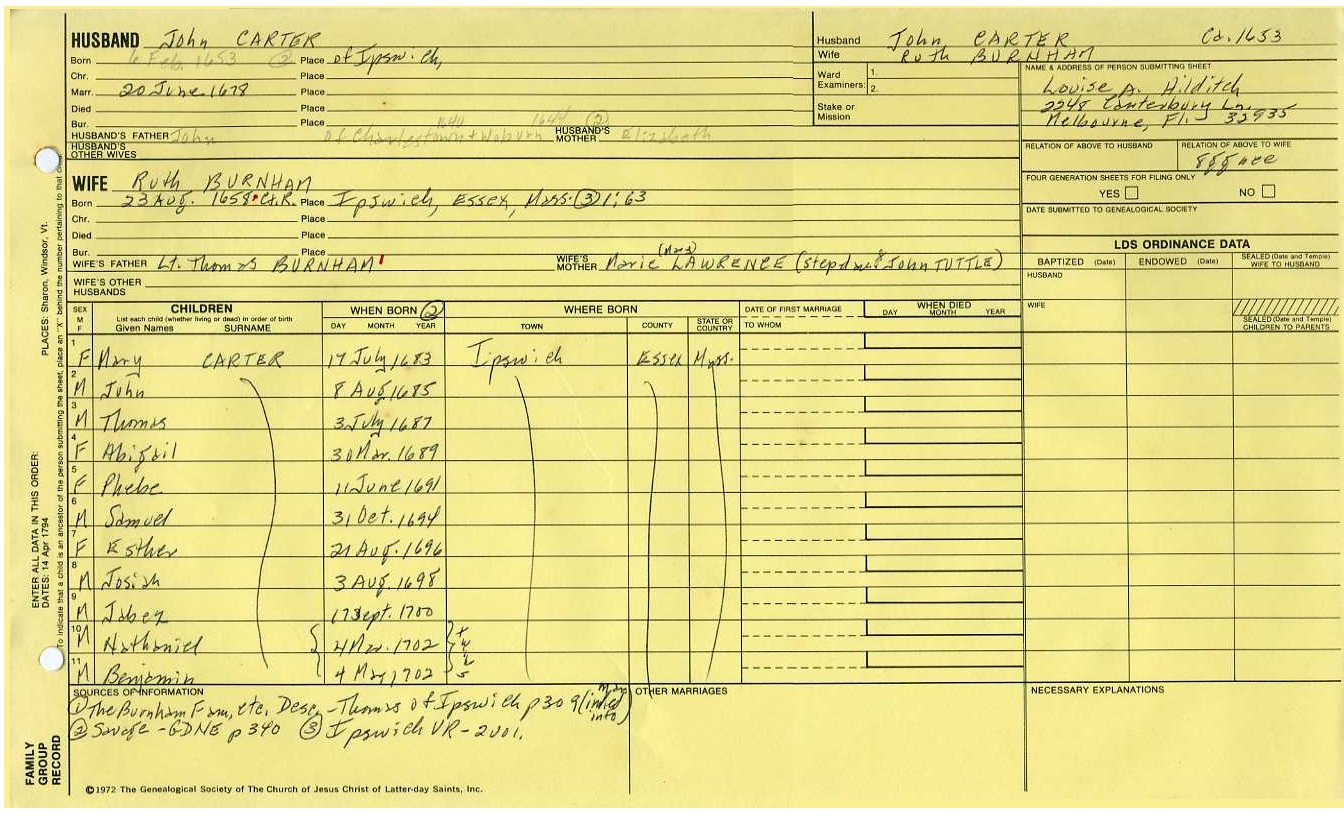 HUSBAND John CARTER
Born 6 Feb. 1653 ② Place of Ipswich,
Chr. Place
Marr. 20 June 1678 Place
Died Place
Bur. Place 1644 1644 ②
HUSBAND'S FATHER John of Charlestown + Woburn HUSBAND'S MOTHER Elizabeth
HUSBAND'S OTHER WIVES
Husband John CARTER Cd. 1653
Wife Ruth BURNHAM
Ward Examiners: 1.
2.
Stake or Mission
NAME & ADDRESS OF PERSON SUBMITTING SHEET
Louise A. Hilditch
2248 Canterbury Ln.
Melbourne, Fl. 32935
RELATION OF ABOVE TO HUSBAND RELATION OF ABOVE TO WIFE
FOUR GENERATION SHEETS FOR FILING ONLY
YES NO
DATE SUBMITTED TO GENEALOGICAL SOCIETY
WIFE Ruth BURNHAM
Born 23 Aug. 1658 Ct.R. Place Ipswich, Essex, Mass. ③ 1;63
Chr. Place
Died Place
Bur. Place
WIFE'S FATHER Lt. Thomas BURNHAM WIFE'S MOTHER Marie (Mary) LAWRENCE (stepdau of John TUTTLE)
WIFE'S OTHER HUSBANDS
LDS ORDINANCE DATA
BAPTIZED (Date) ENDOWED (Date) SEALED (Date and Temple) WIFE TO HUSBAND
HUSBAND
WIFE
SEALED (Date and Temple) CHILDREN TO PARENTS
SEX M F CHILDREN WHEN BORN ② WHERE BORN DATE OF FIRST MARRIAGE WHEN DIED
List each child (whether living or dead) in order of birth
Given Names SURNAME DAY MONTH YEAR TOWN COUNTY STATE OR COUNTRY TO WHOM DAY MONTH YEAR
1 F Mary CARTER 17 July 1683 Ipswich Essex Mass.
2 M John 8 Aug 1685
3 M Thomas 3 July 1687
4 F Abigail 30 Mar. 1689
5 F Phebe 11 June 1691
6 M Samuel 31 Oct. 1694
7 F Esther 21 Aug. 1696
8 M Josiah 3 Aug. 1698
9 M Jabez 17 Sept. 1700
10 M Nathaniel 4 Mar. 1702
11 M Benjamin 4 Mar 1702
SOURCES OF INFORMATION
① The Burnham Fam, etc. Desc. - Thomas of Ipswich p 309 (limited info)
② Savage - GDNE p 340 ③ Ipswich VR - 2001.
OTHER MARRIAGES
NECESSARY EXPLANATIONS
©1972 The Genealogical Society of The Church of Jesus Christ of Latter-day Saints, Inc.
FAMILY GROUP RECORD
ENTER ALL DATA IN THIS ORDER:
DATES: 14 Apr 1794
PLACES: Sharon, Windsor, Vt.
To indicate that a child is an ancestor of the person submitting the sheet, place an "X" behind the number pertaining to that